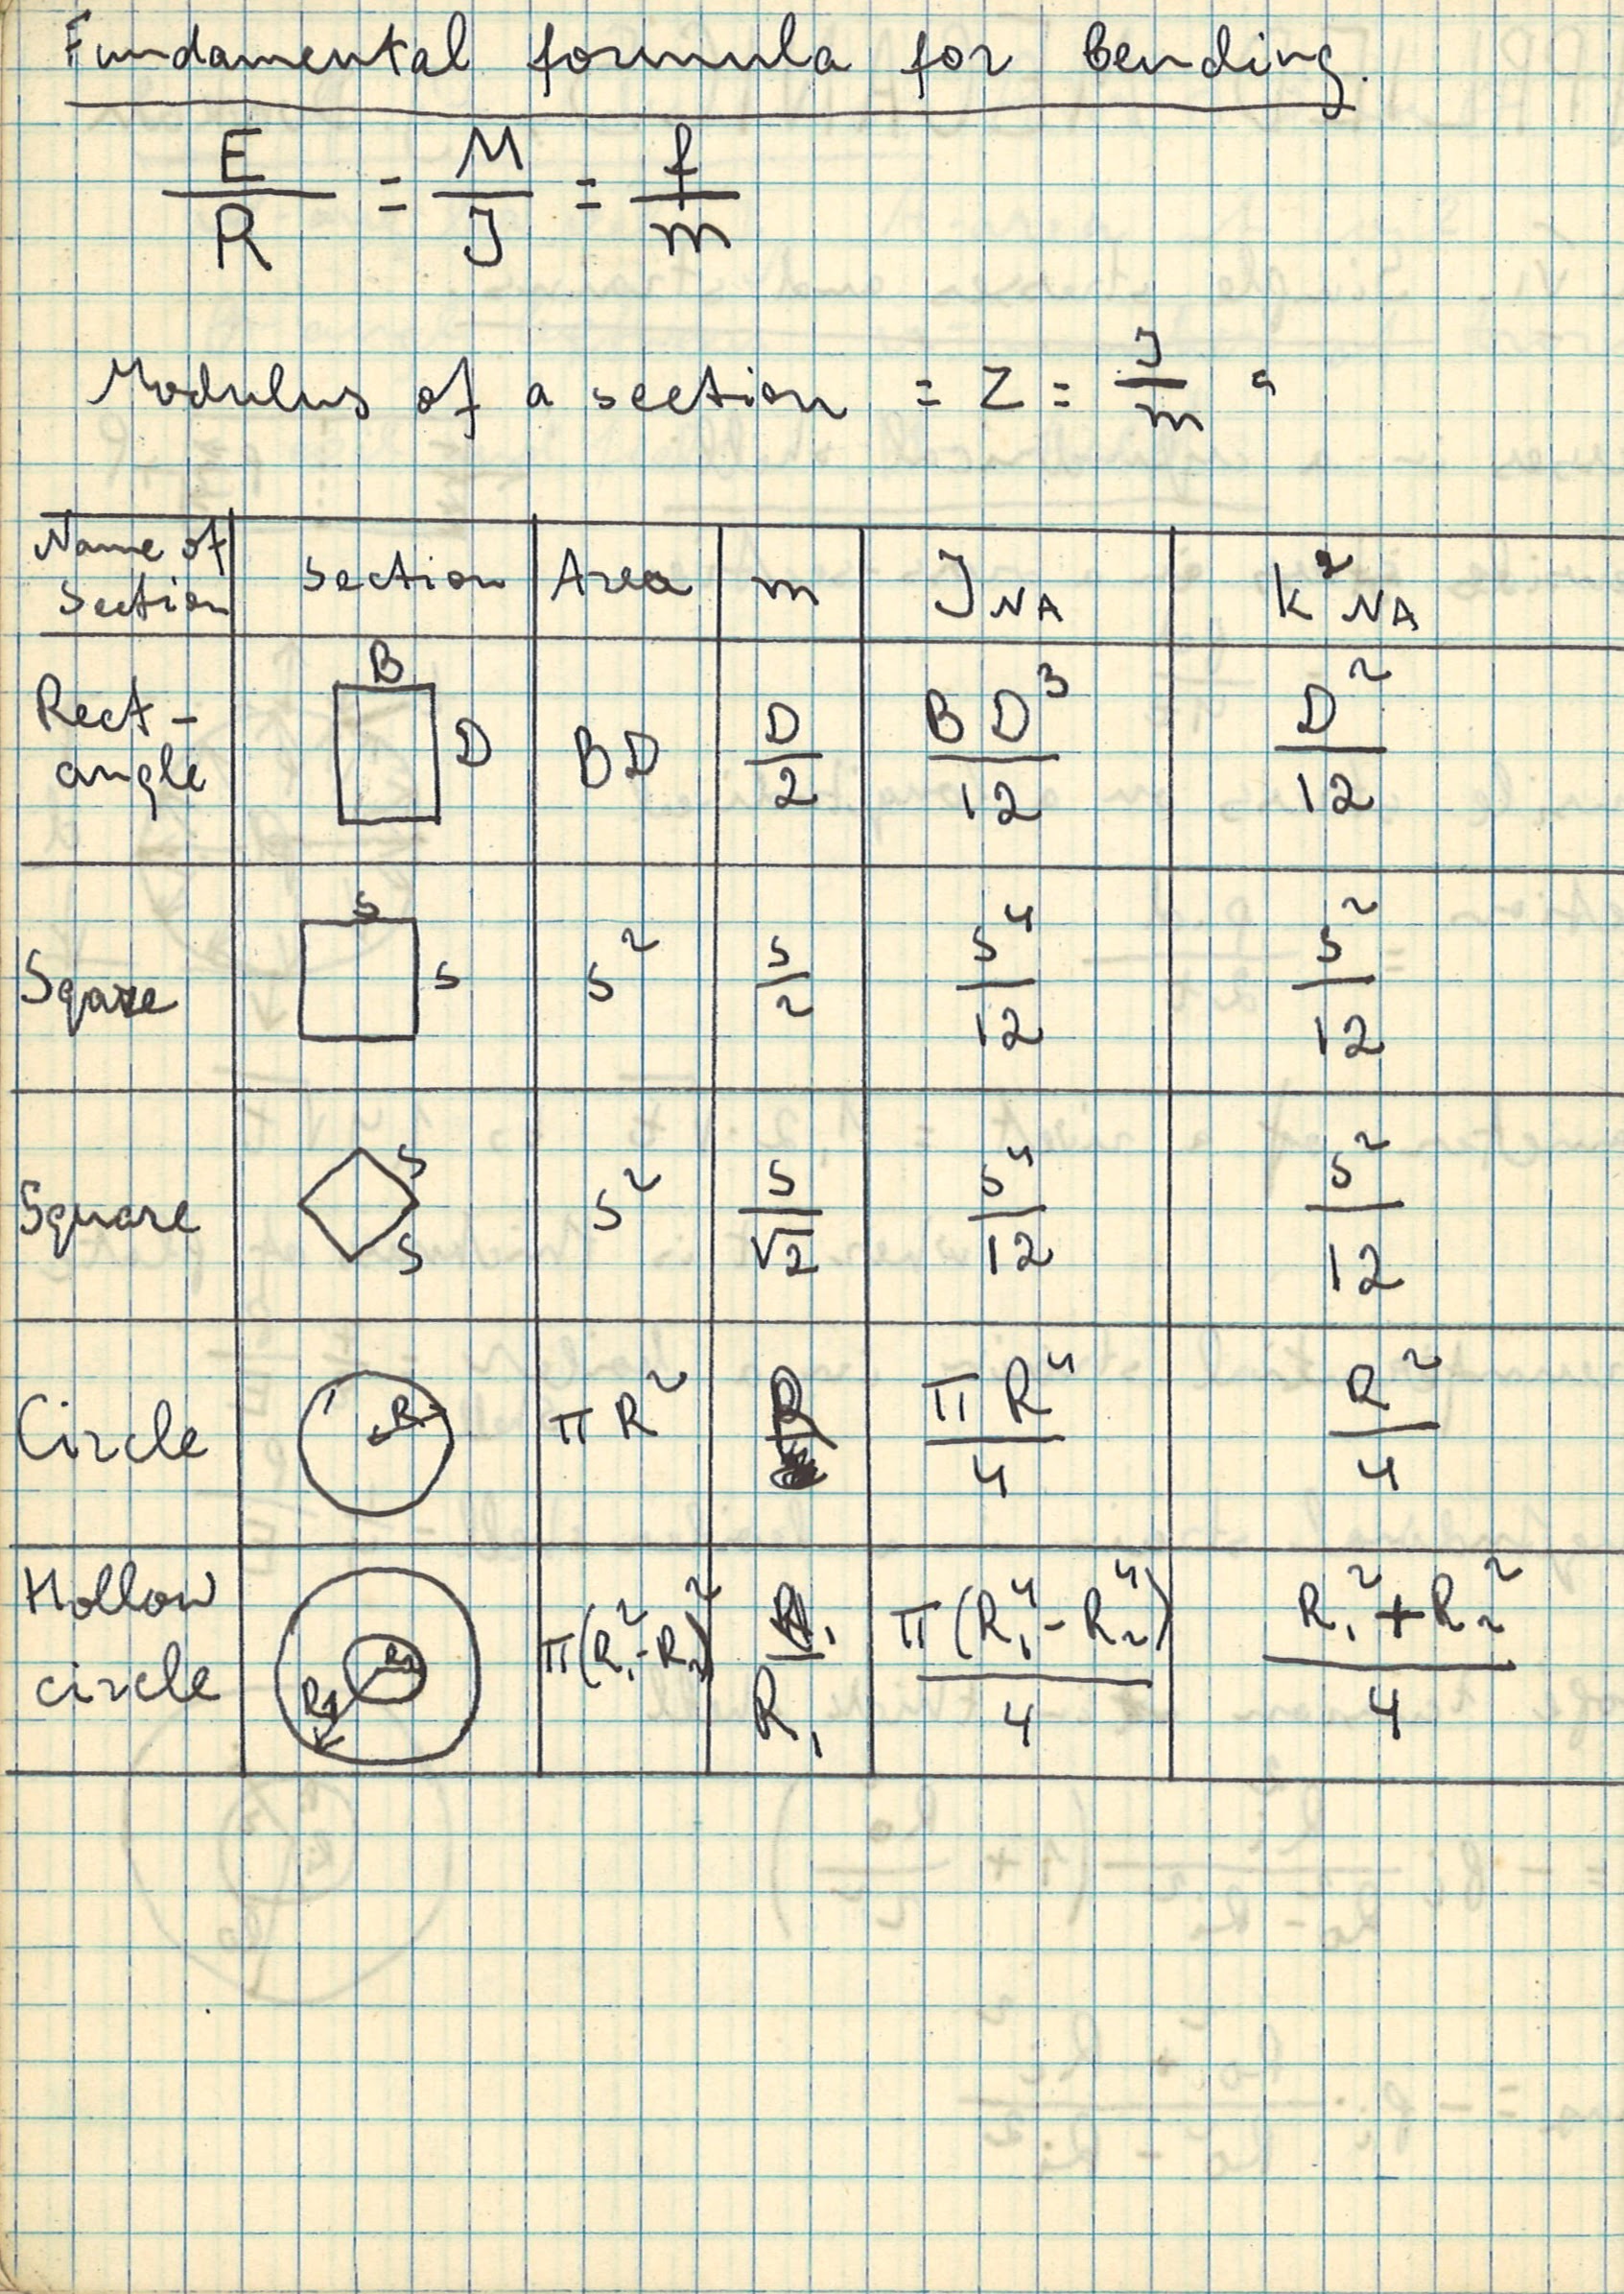 Fundamental formula for bending.
E/R = M/J = f/m
Modulus of a section = Z = J/m
Name of Section | Section | Area | m | J NA | k² NA
Rect-angle | B D | BD | D/2 | BD³/12 | D²/12
Sqare | s s | s² | s/2 | s⁴/12 | s²/12
Square | s s | s² | s/√2 | s⁴/12 | s²/12
Circle | R | πR² | R | πR⁴/4 | R²/4
Hollow circle | R₁ R₂ | π(R₁²-R₂²) | R₁ | π(R₁⁴-R₂⁴)/4 | R₁²+R₂²/4